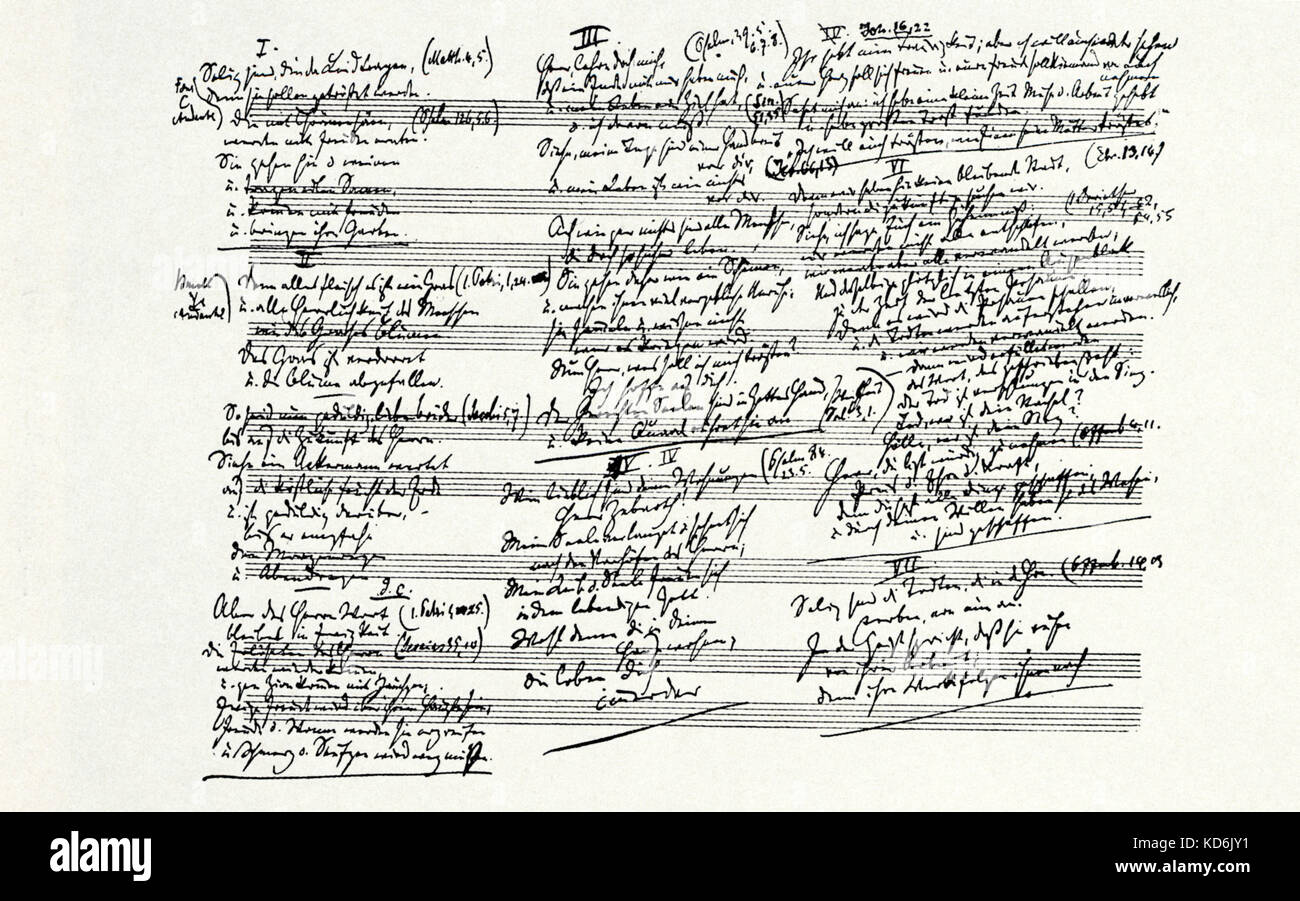 I.
Selig sind, die da Leid tragen, (Matth. 4,5.)
denn sie sollen getröstet werden.
Die mit Thränen säen, (Psalm 126,5.6.)
werden mit Freuden ernten.
Sie gehen hin u. weinen
u. tragen edlen Samen,
u. kommen mit Freuden
u. bringen ihre Garben.
II
Denn alles Fleisch ist wie Gras (1. Petri, 1,24.
u. alle Herrlichkeit des Menschen
wie des Grases Blumen
Das Gras ist verdorret
u. die Blume abgefallen.
So seid nun geduldig, lieben Brüder (Jacobi, 5,7)
bis auf die Zukunft des Herrn.
Siehe ein Ackermann wartet
auf die köstliche Frucht der Erde
u. ist geduldig darüber,
bis er empfahe
den Morgenregen
u. Abendregen
d. c.
Aber des Herren Wort (1. Petri, 25.)
bleibet in Ewigkeit
Die Erlöseten des Herrn (Jesaias 35,10)
werden wieder kommen,
u. gen Zion kommen mit Jauchzen,
Ewige Freude wird über ihrem Haupte sein,
Freude u. Wonne werden sie ergreifen
u. Schmerz u. Seufzen wird weg müssen.
III.
Herr, lehre doch mich, (Psalm, 39. 5.
6.7.8.)
daß ein Ende mit mir haben muß,
u. mein Leben ein Ziel hat,
u. ich davon muß
Siehe, meine Tage sind einer Hand breit
vor dir,
u. mein Leben ist wie nichts
vor dir.
Ach wie gar nichts sind alle Menschen,
die doch so sicher leben.
Sie gehen daher wie ein Schemen,
u. machen ihnen viel vergebliche Unruhe;
sie sammeln u. wissen nicht
wer es kriegen wird
Nun Herr, wess soll ich mich trösten?
Ich hoffe auf dich.
Der Gerechten Seelen sind in Gottes Hand,
u. keine Quaal rühret sie an 3,1.)
IV
Wie lieblich sind deine Wohnungen (Psalm 84.
2.3.5.
Herr Zebaoth!
Meine Seele verlanget u. sehnet sich
nach den Vorhöfen des Herrn;
Mein Leib u. Seele freuen sich
in dem lebendigen Gott.
Wohl denen die in deinem
Hause wohnen,
die loben dich
immerdar
V. Joh. 16,22
Ihr habt nun Traurigkeit; aber ich will euch wieder sehen
u. euer Herz soll sich freuen u. eure Freude soll niemand von euch
nehmen
(Sir.
51,35) Sehet mich an: ich habe eine kleine Zeit Mühe u. Arbeit gehabt
u. habe großen Trost funden
(Jes. 66,13) Ich will euch trösten, wie einen seine Mutter tröstet.
VI
Denn wir haben hie keine bleibende Statt, (Ebr. 13,14)
sondern die zukünftige suchen wir.
Siehe, ich sage Euch ein Geheimniß:
wir werden nicht alle entschlafen,
wir werden aber alle verwandelt werden;
Und dasselbige plötzlich in einem Augenblick
zu der Zeit der letzten Posaune
Denn es wird die Posaune schallen,
u. die Todten werden auferstehen unverweslich,
u. wir werden verwandelt werden.
dann wird erfüllet werden
das Wort, das geschrieben steht:
der Tod ist verschlungen in den Sieg.
Tod, wo ist dein Stachel?
Hölle, wo ist dein Sieg?
Herr, du bist würdig zu nehmen (Offenb. 4. 11.
Preis u. Ehre u. Kraft,
denn du hast alle Dinge geschaffen,
u. durch deinen Willen haben sie das Wesen,
u. sind geschaffen.
VII
Selig sind die Todten, die in d. Herrn (Offenb. 14,13
sterben, von nun an.
Ja der Geist spricht, daß sie ruhen
von ihrer Arbeit
denn ihre Werke folgen ihnen nach
alamy
alamy stock photo
KD6JY1
www.alamy.com